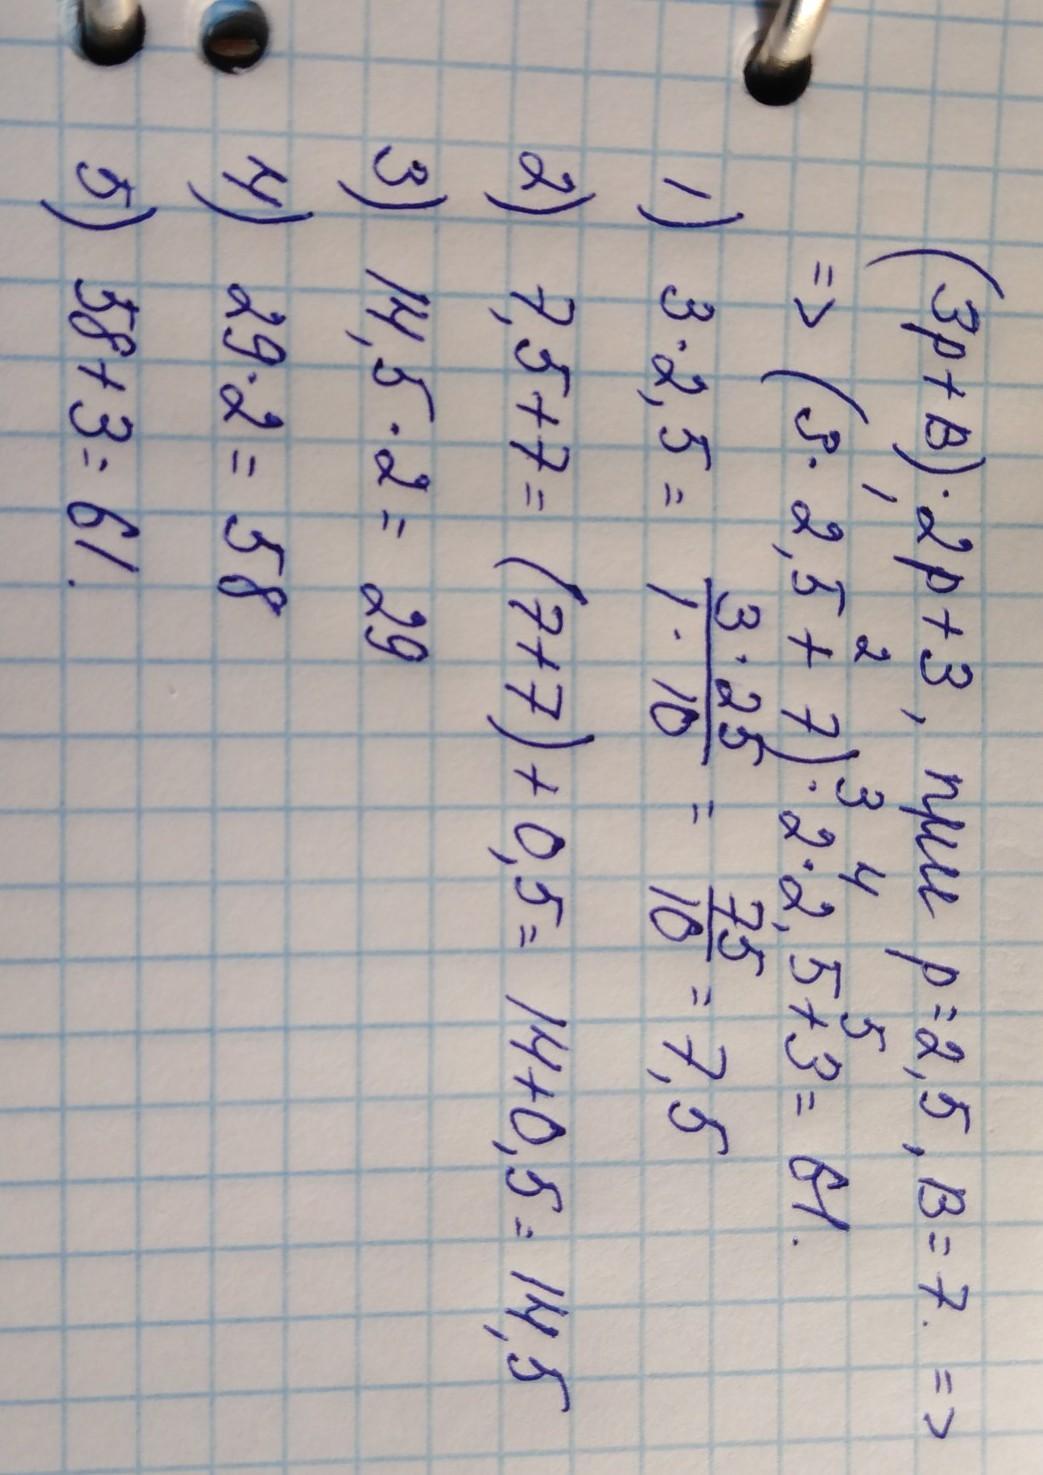 (3p+B)·2p+3, при p=2,5, B=7. =>
1 2 3 4 5
=> (3·2,5+7)·2·2,5+3= 61.
1) 3·2,5= 3·25/1·10 = 75/10 = 7,5
2) 7,5+7= (7+7)+0,5= 14+0,5= 14,5
3) 14,5·2= 29
4) 29·2= 58
5) 58+3= 61.